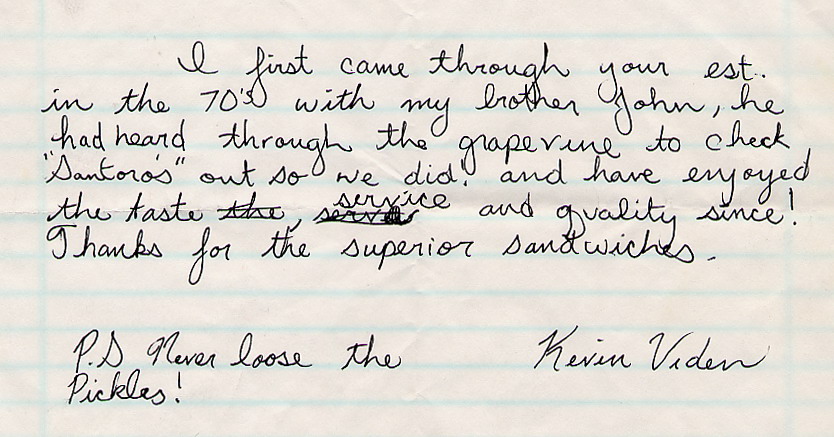 I first came through your est.
in the 70's with my brother John, he
had heard through the grapevine to check
"Santoro's" out so we did! and have enjoyed
the taste the, service and quality since!
Thanks for the superior sandwiches.
P.S Never loose the Kevin Viden
Pickles!